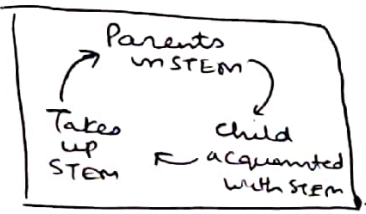 Parents
in STEM
Child
acquainted
with STEM
Takes
up
STEM